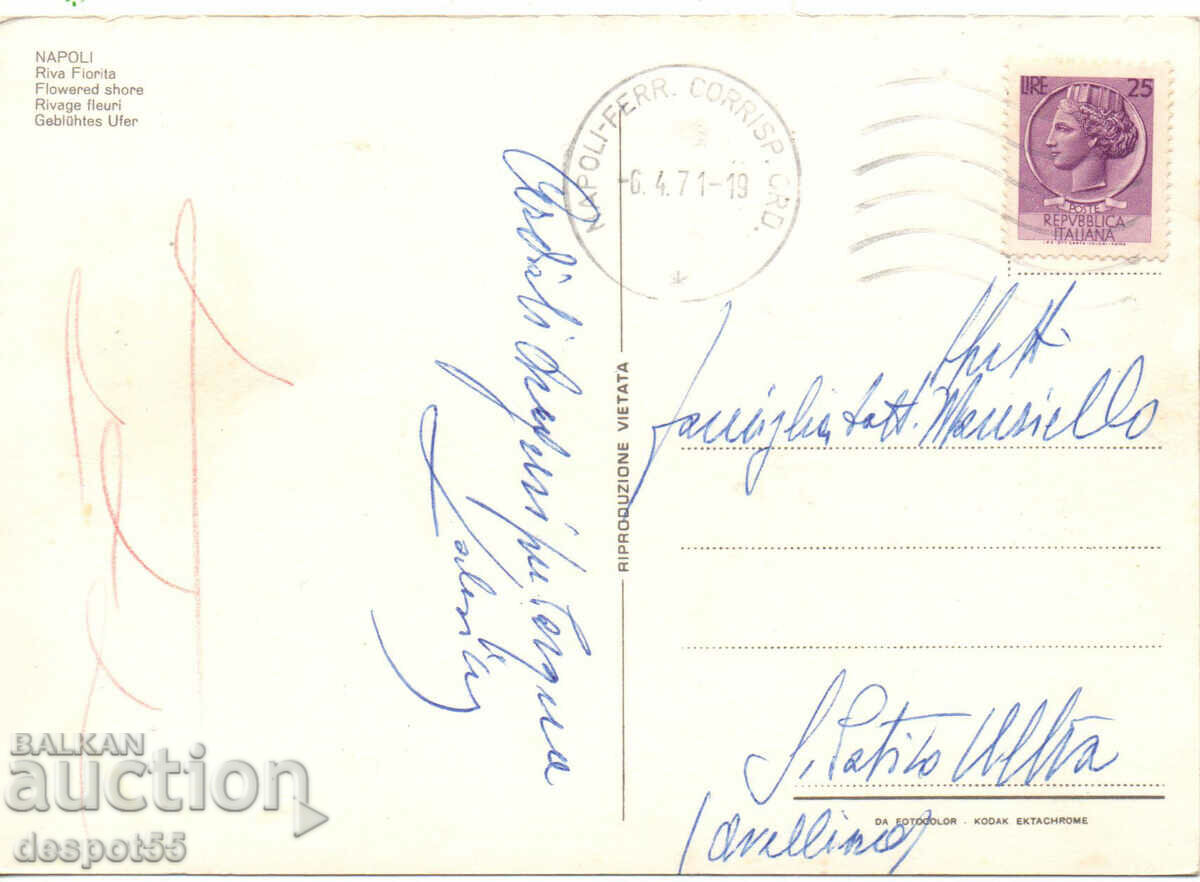 NAPOLI
Riva Fiorita
Flowered shore
Rivage fleuri
Geblühtes Ufer
NAPOLI-FERR. CORRISP. ORD.
-6.4.71-19
LIRE 25
POSTE
REPVBBLICA
ITALIANA
Cordiali auguri per Pasqua
RIPRODUZIONE VIETATA
Spett
famiglia dott. Mausiello
S. Potito Ultra
(Avellino)
DA FOTOCOLOR - KODAK EKTACHROME
BALKAN
auction
despot55